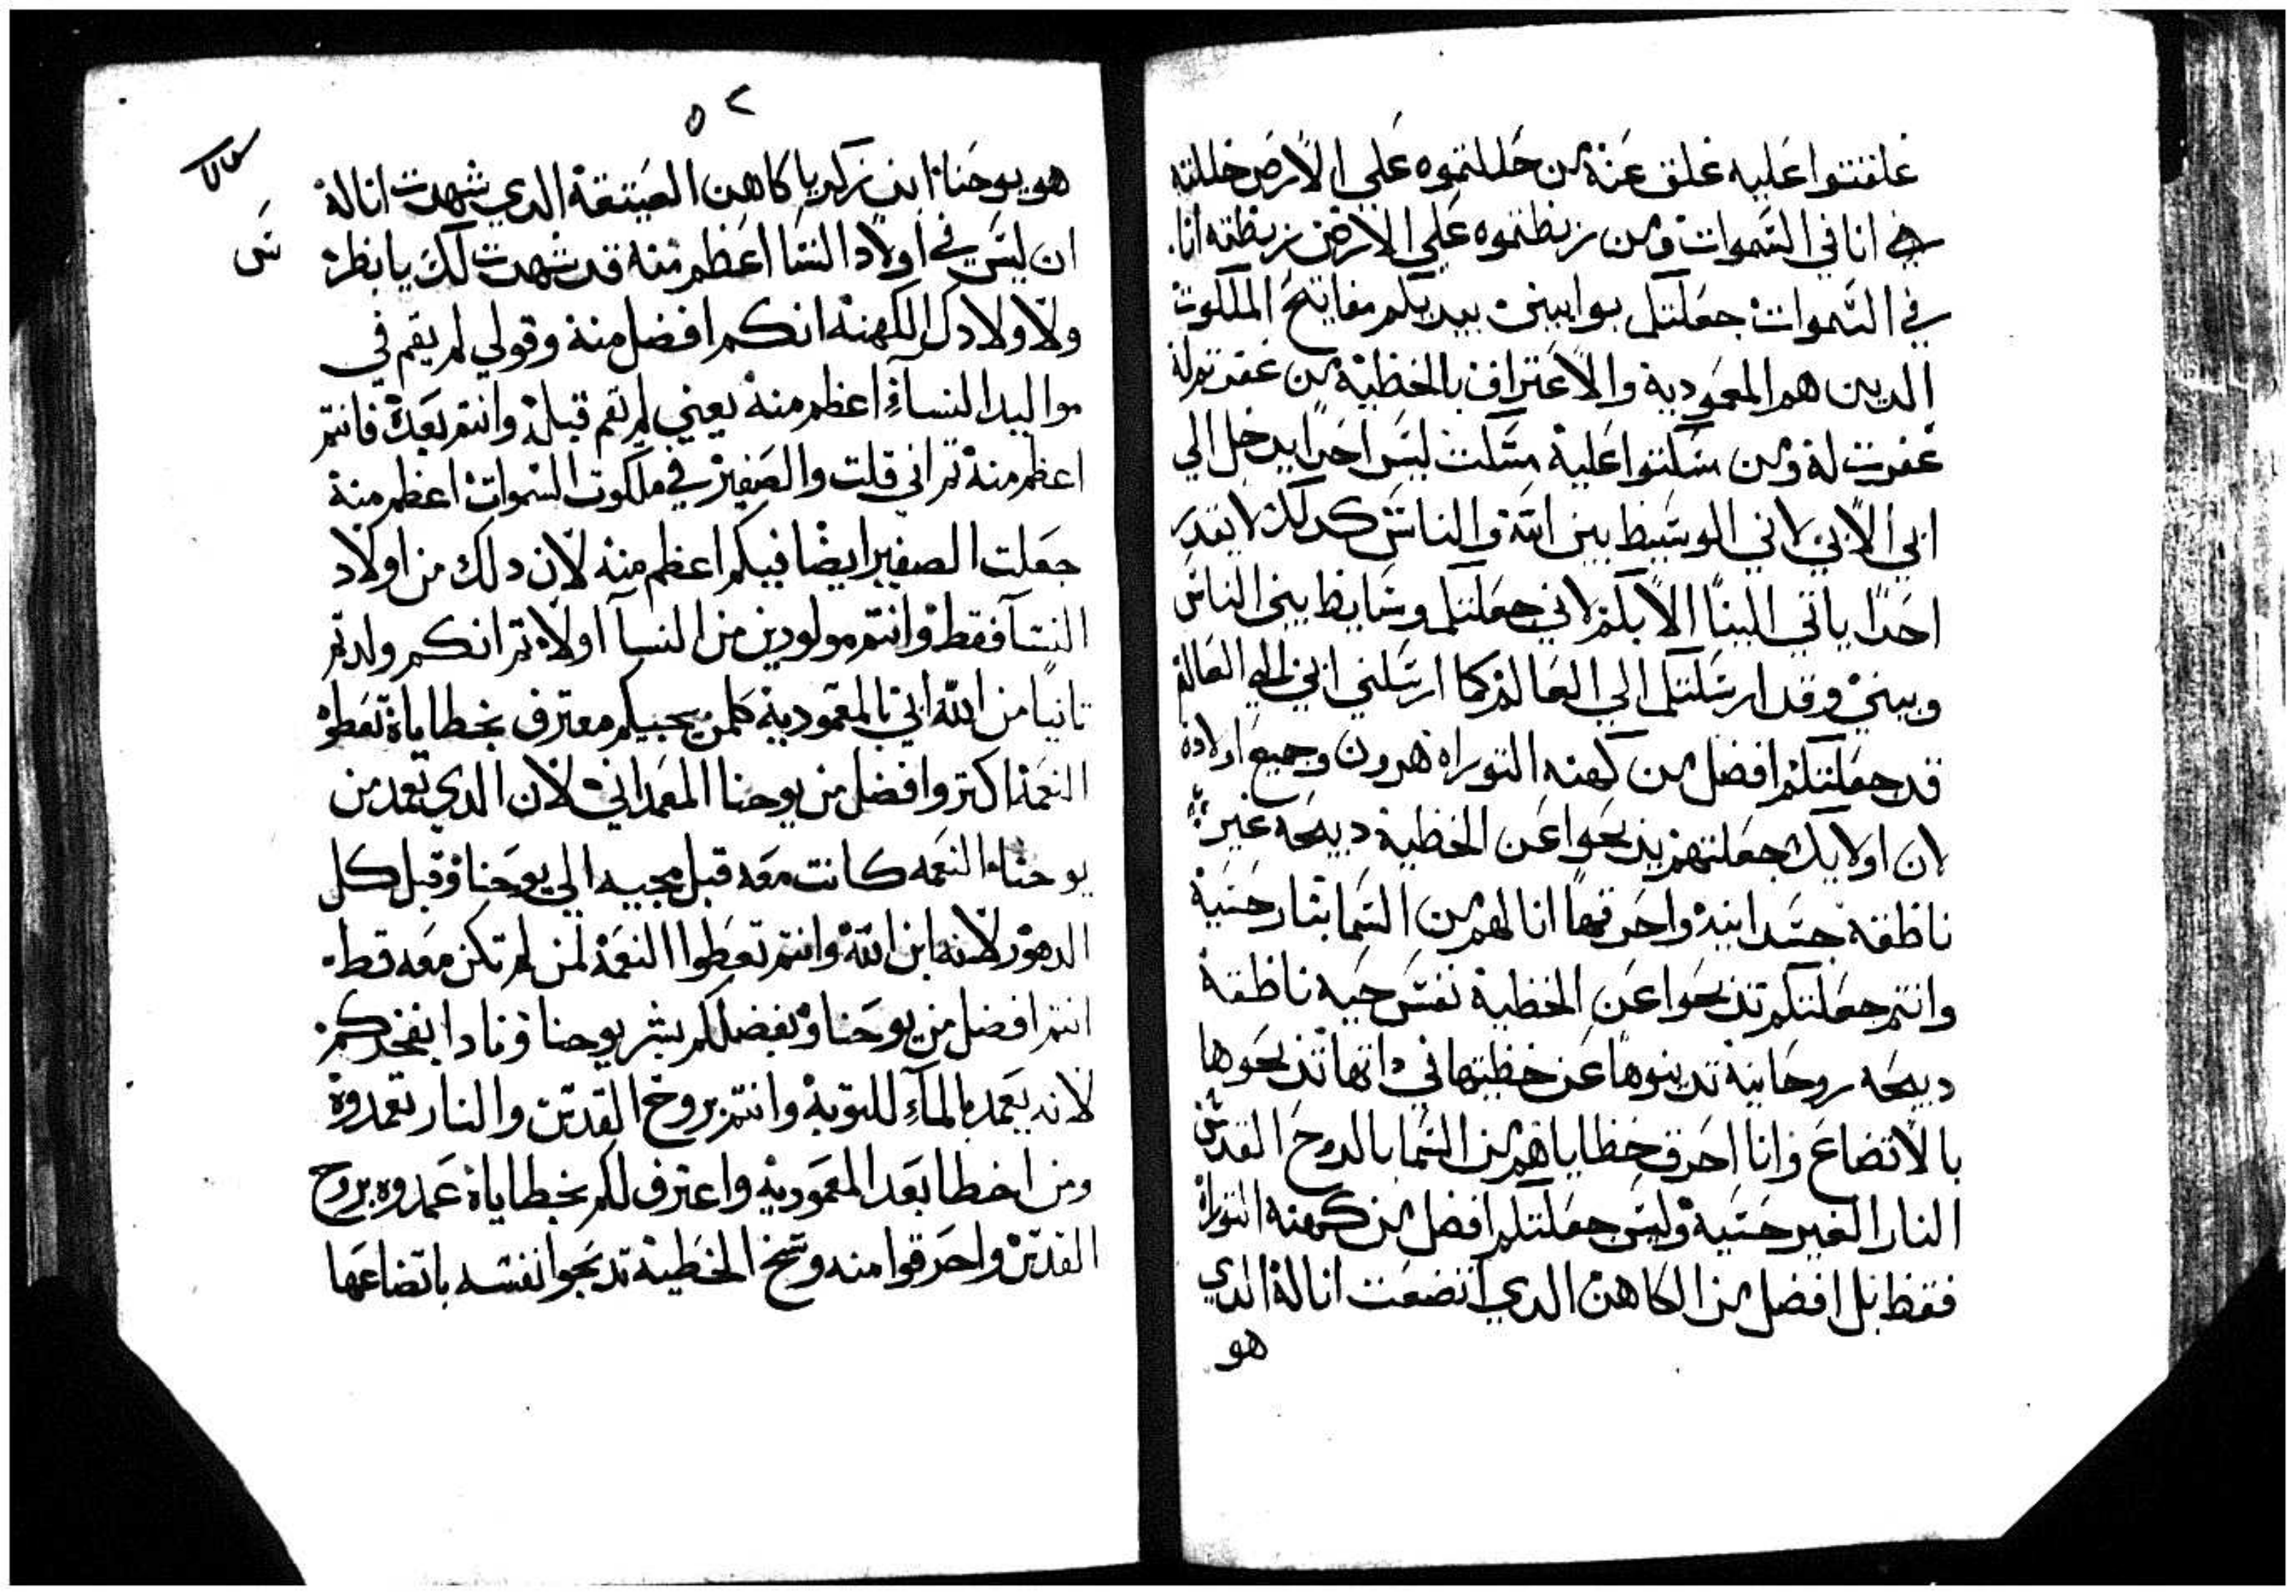 غلقتوا عليه غلق عنه من حللتموه علي الارض حللته
انا في السموات ومن ربطتموه علي الارض ربطته انا
في السموات جعلتكم بوابين بيديكم مفاتيح الملكوت
الدين هم المعمودية والاعتراف بالخطية من غفرتم له
غفرت له ومن مسكتوا عليه مسكت ليس احدا يدخل الي
ابي الا بي لاني الوسيط بين الله والناس كدلك لا يقدر
احدا ياتي الينا الا بكم لاني جعلتكم وسايط بين الناس
وبيني وقد ارسلتكم الي العالم كما ارسلني ابي الي العالم
قد جعلتكم افضل من كهنه التوراه هرون وجميع اولاده
لان اولايك جعلتهم يدبحوا عن الخطية دبيحه غير
ناطقه جسدانيه واحرقها انا لهم من السما بنار حسية
وانتم جعلتكم تدبحوا عن الخطية نفس حيه ناطقة
دبيحه روحانية تدينوها عن خطيتها في داتها تدبحوها
بالاتضاع وانا احرق خطاياهم من السما بالروح القدس
النار الغير حسية وليس جعلتكم افضل من كهنه التوراة
فقط بل افضل من الكاهن الدي اتضعت انا له الدي
هو
٥٢
هو يوحنا ابن زكريا كاهن العتيقة الدي شهدت انا له
ان ليس في اولاد النسا اعظم منه قد شهدت لك يا بطرس
ولاولادك الكهنة انكم افضل منه وقولي لم يقم في
مواليد النسآء اعظم منه يعني لم تقم قبله وانتم بعده فانتم
اعظم منه تم اني قلت والصغير في ملكوت السموات اعظم منه
جعلت الصغير ايضا فيكم اعظم منه لان دلك من اولاد
النسآ فقط وانتم مولودين من النسآ اولا تم انكم ولدتم
تانيا من الله ابي بالمعمودية كلمن يجيكم معترف بخطاياه تعطوه
النعمه اكتر وافضل من يوحنا المعمداني لان الدي تعمد من
يوحنا النعمه كانت معه قبل مجيه الي يوحنا وقبل كل
الدهور لانه ابن الله وانتم تعطوا النعمة لمن لم تكن معه قط
انتم افضل من يوحنا وبفضلكم بشر يوحنا ونادا بفخركم
لانه يعمد بالمآء للتوبة وانتم بروح القدس والنار تعمدوه
ومن اخطا بعد المعمودية واعترف لكم بخطاياه عمدوه بروح
القدس واحرقوا منه وسخ الخطية تدبحوا نفسه باتضاعها